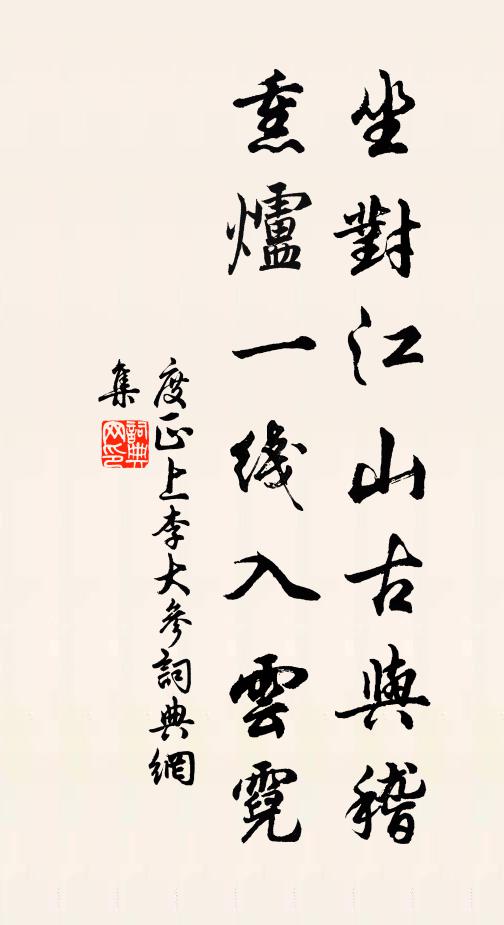 坐對江山古與稽
熏爐一綫入雲霓
度正上李大參詞典網
集
詞典
网印